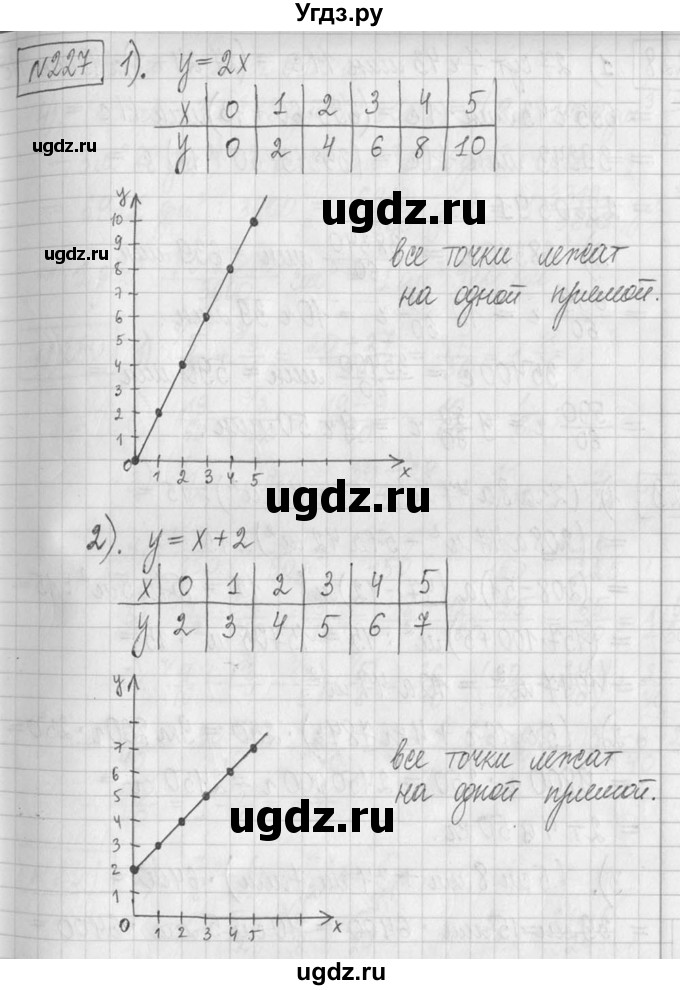 Угдз.ру
№227 1). y=2x
x 0 1 2 3 4 5
y 0 2 4 6 8 10
ugdz.ru
ugdz.ru
ugdz.ru
y
10
9
8
7
6
5
4
3
2
1
0 1 2 3 4 5 x
все точки лежат
на одной прямой.
ugdz.ru
2). y=x+2
x 0 1 2 3 4 5
y 2 3 4 5 6 7
y
7
6
5
4
3
2
1
1 2 3 4 5 x
все точки лежат
на одной прямой.
ugdz.ru
ugdz.ru